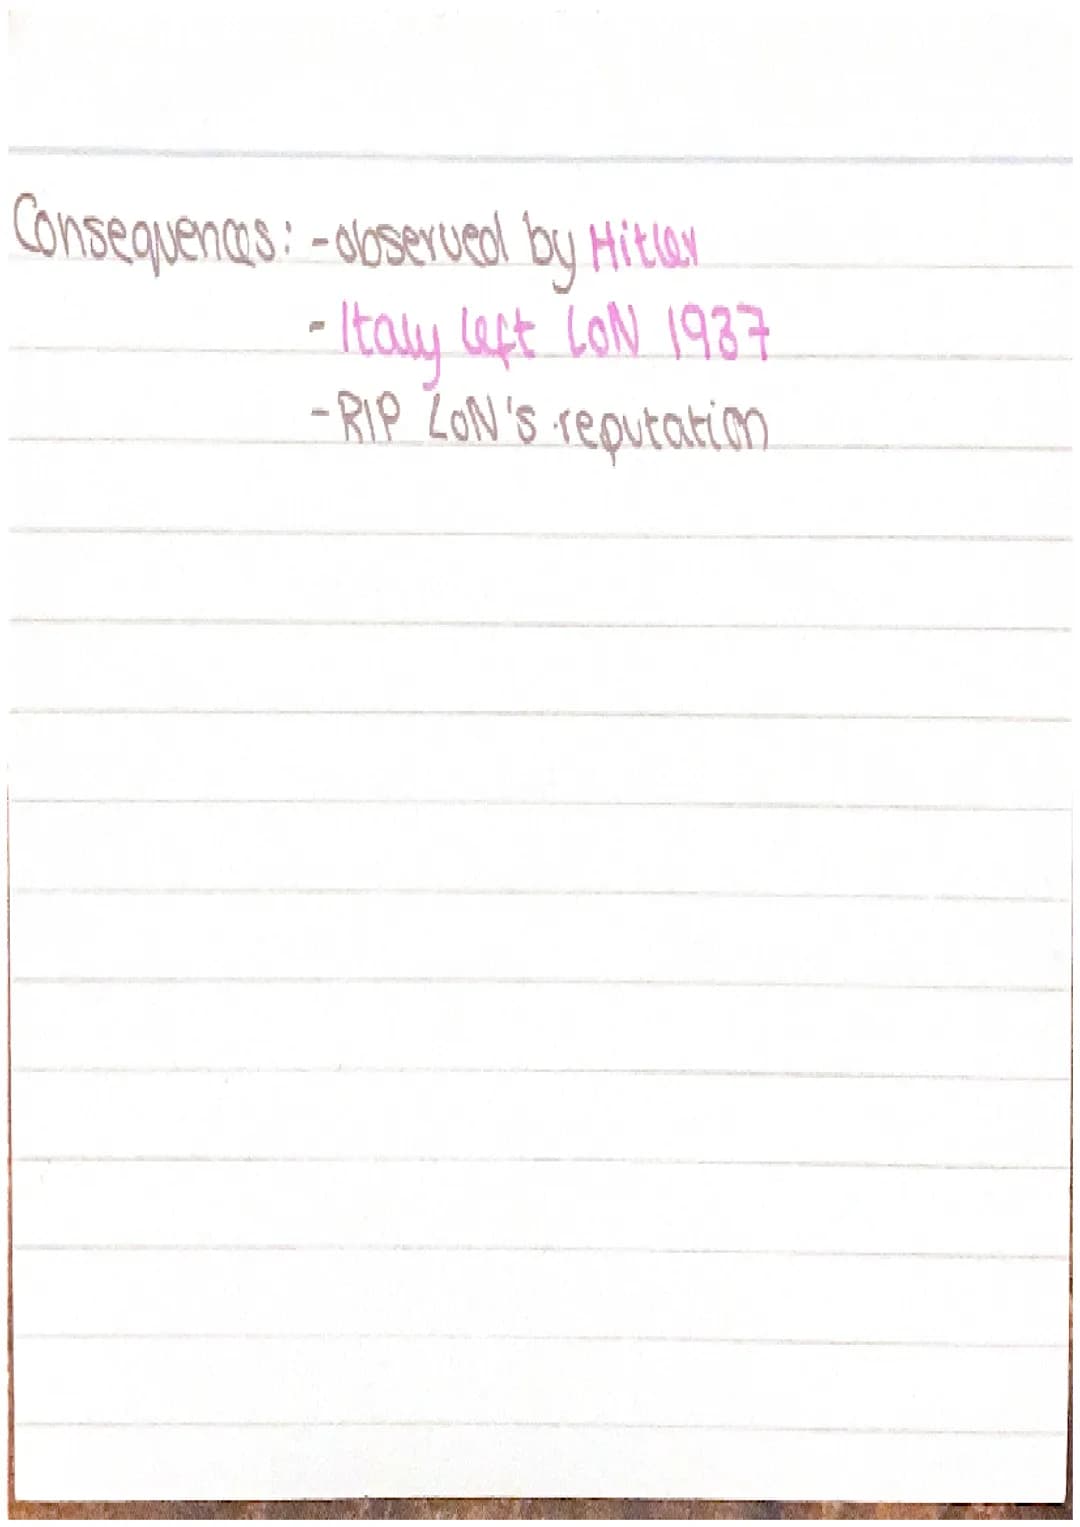 Consequences: - observed by Hitler
- Italy left LoN 1937
- RIP LoN's reputation